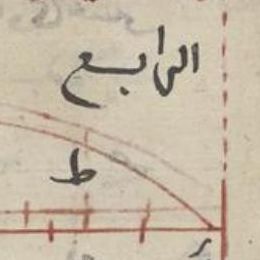 الرابع
ط